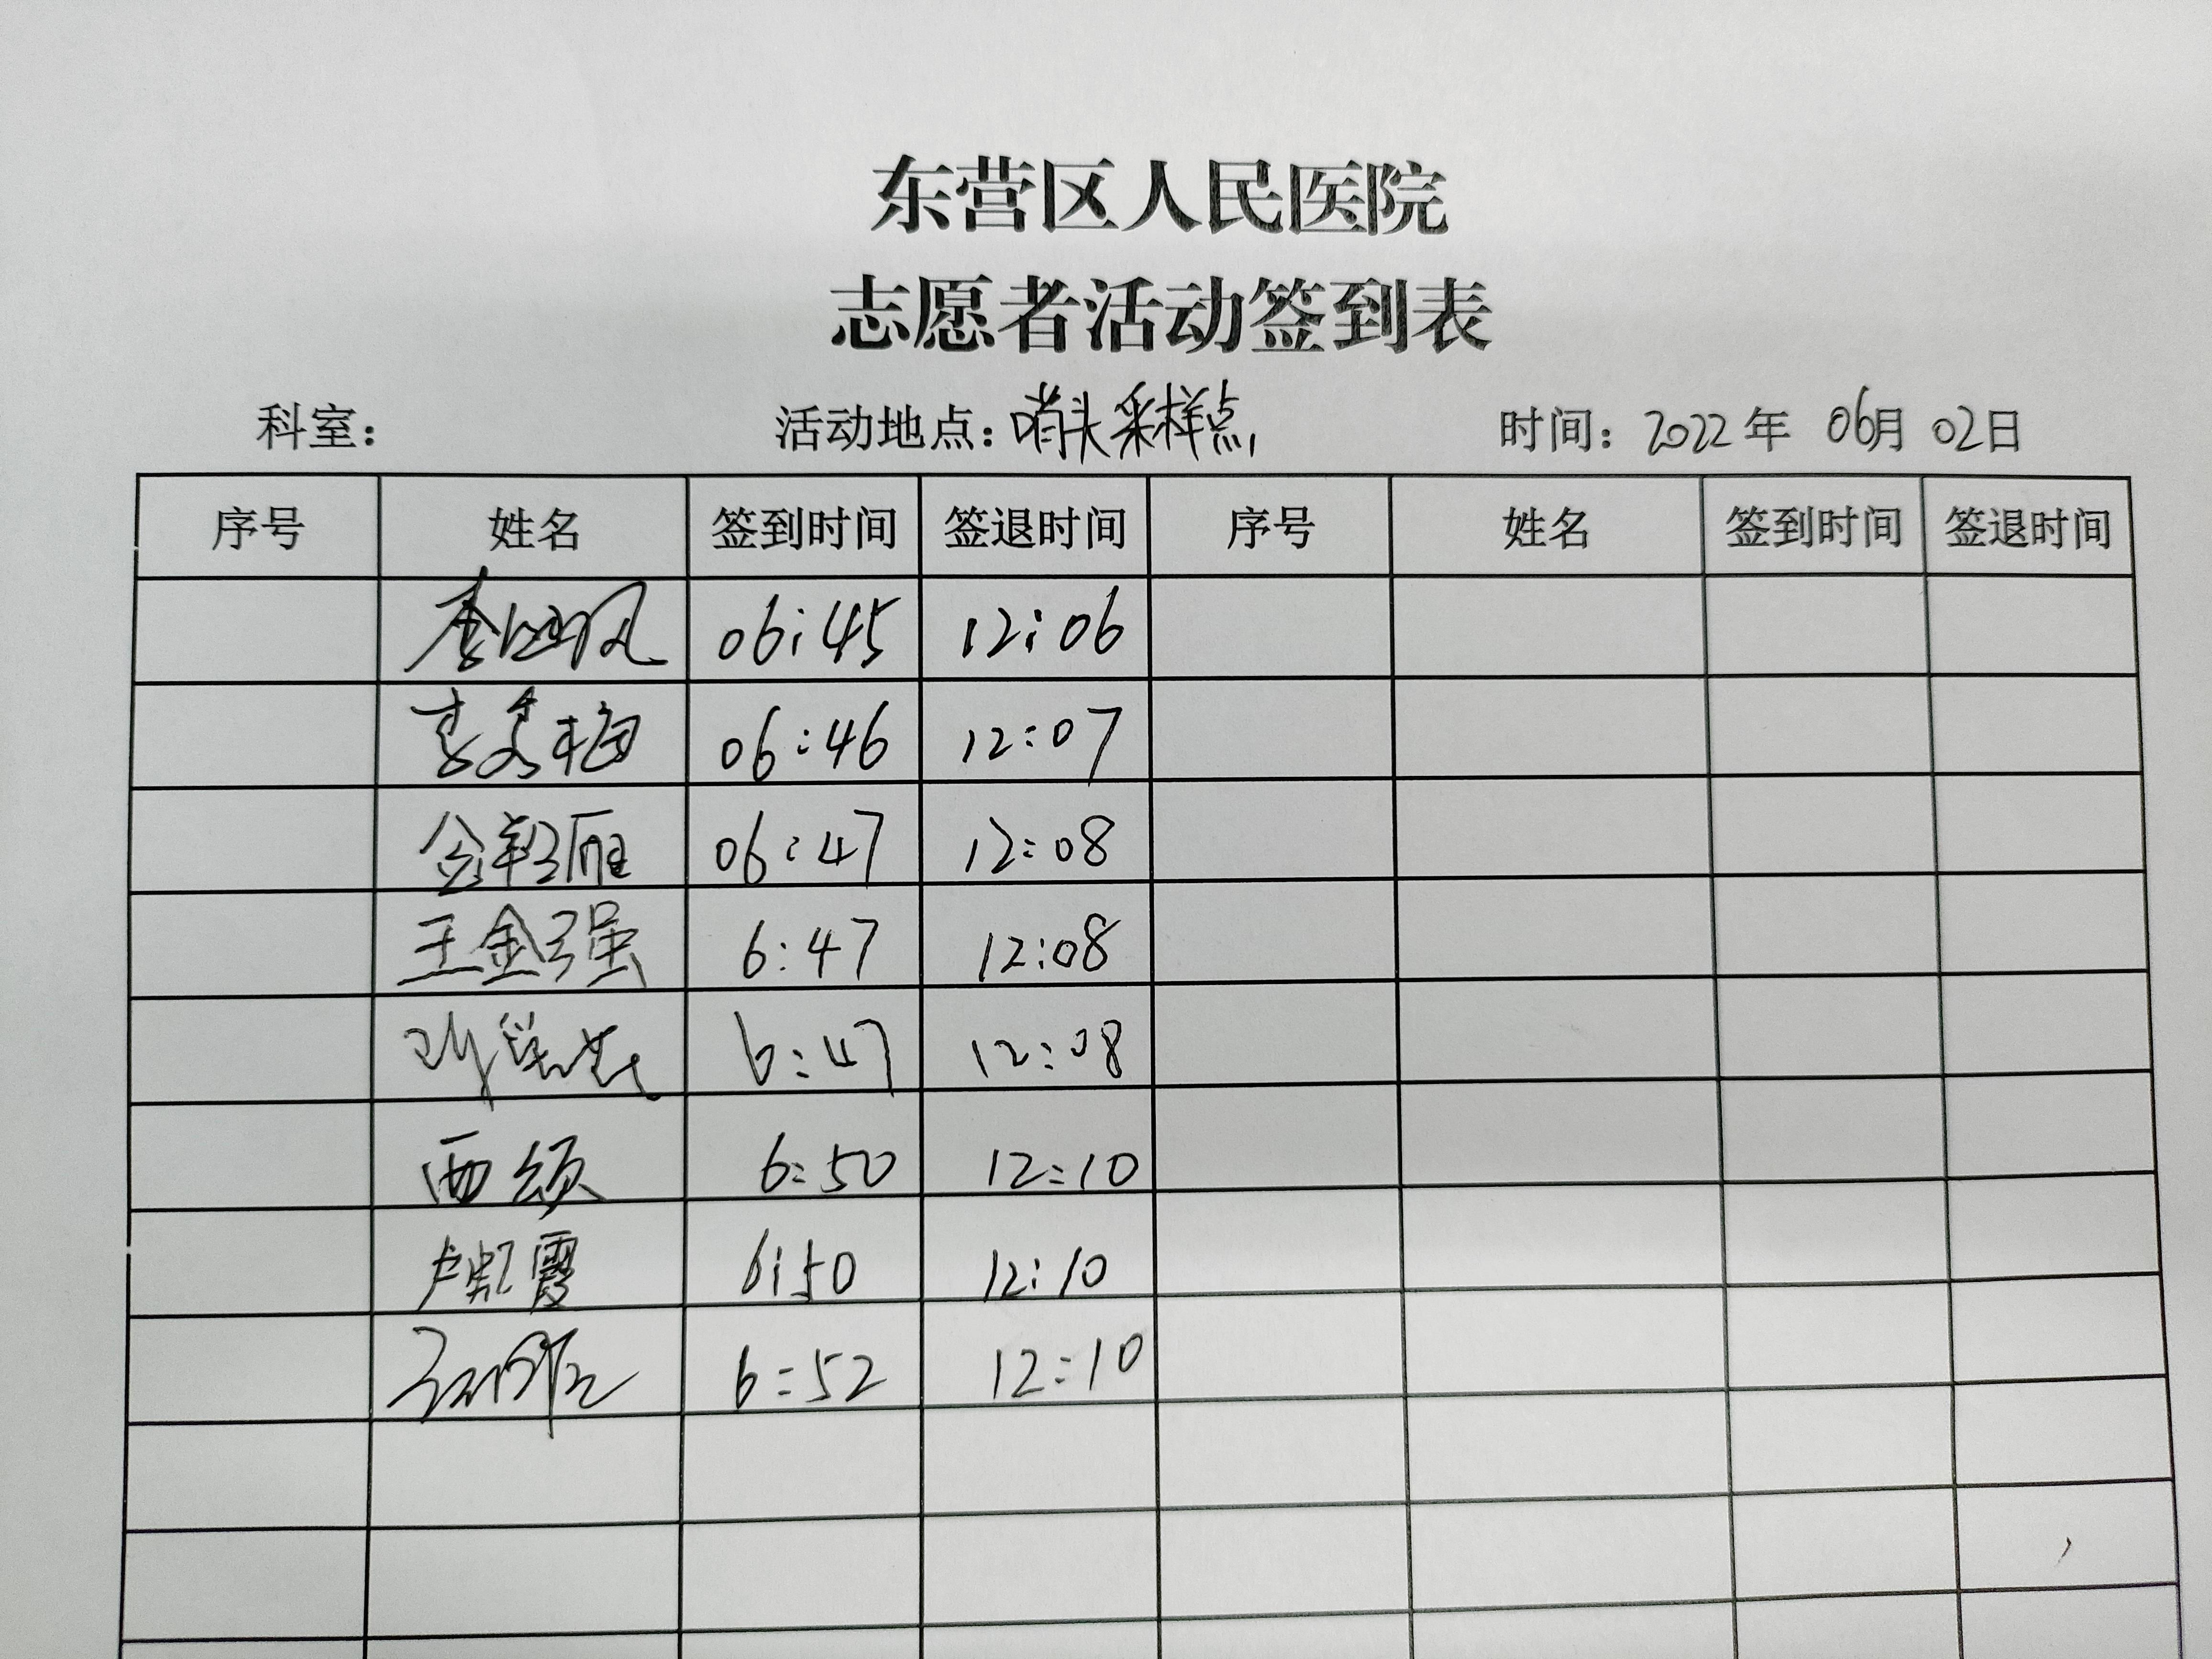 东营区人民医院
志愿者活动签到表
科室： 活动地点：哨头采样点 时间：2022年 06月 02日
序号 姓名 签到时间 签退时间 序号 姓名 签到时间 签退时间
06:45 12:06
李秀梅 06:46 12:07
06:47 12:08
王金强 6:47 12:08
6:47 12:08
西颂 6:50 12:10
卢虹霞 6:50 12:10
6:52 12:10